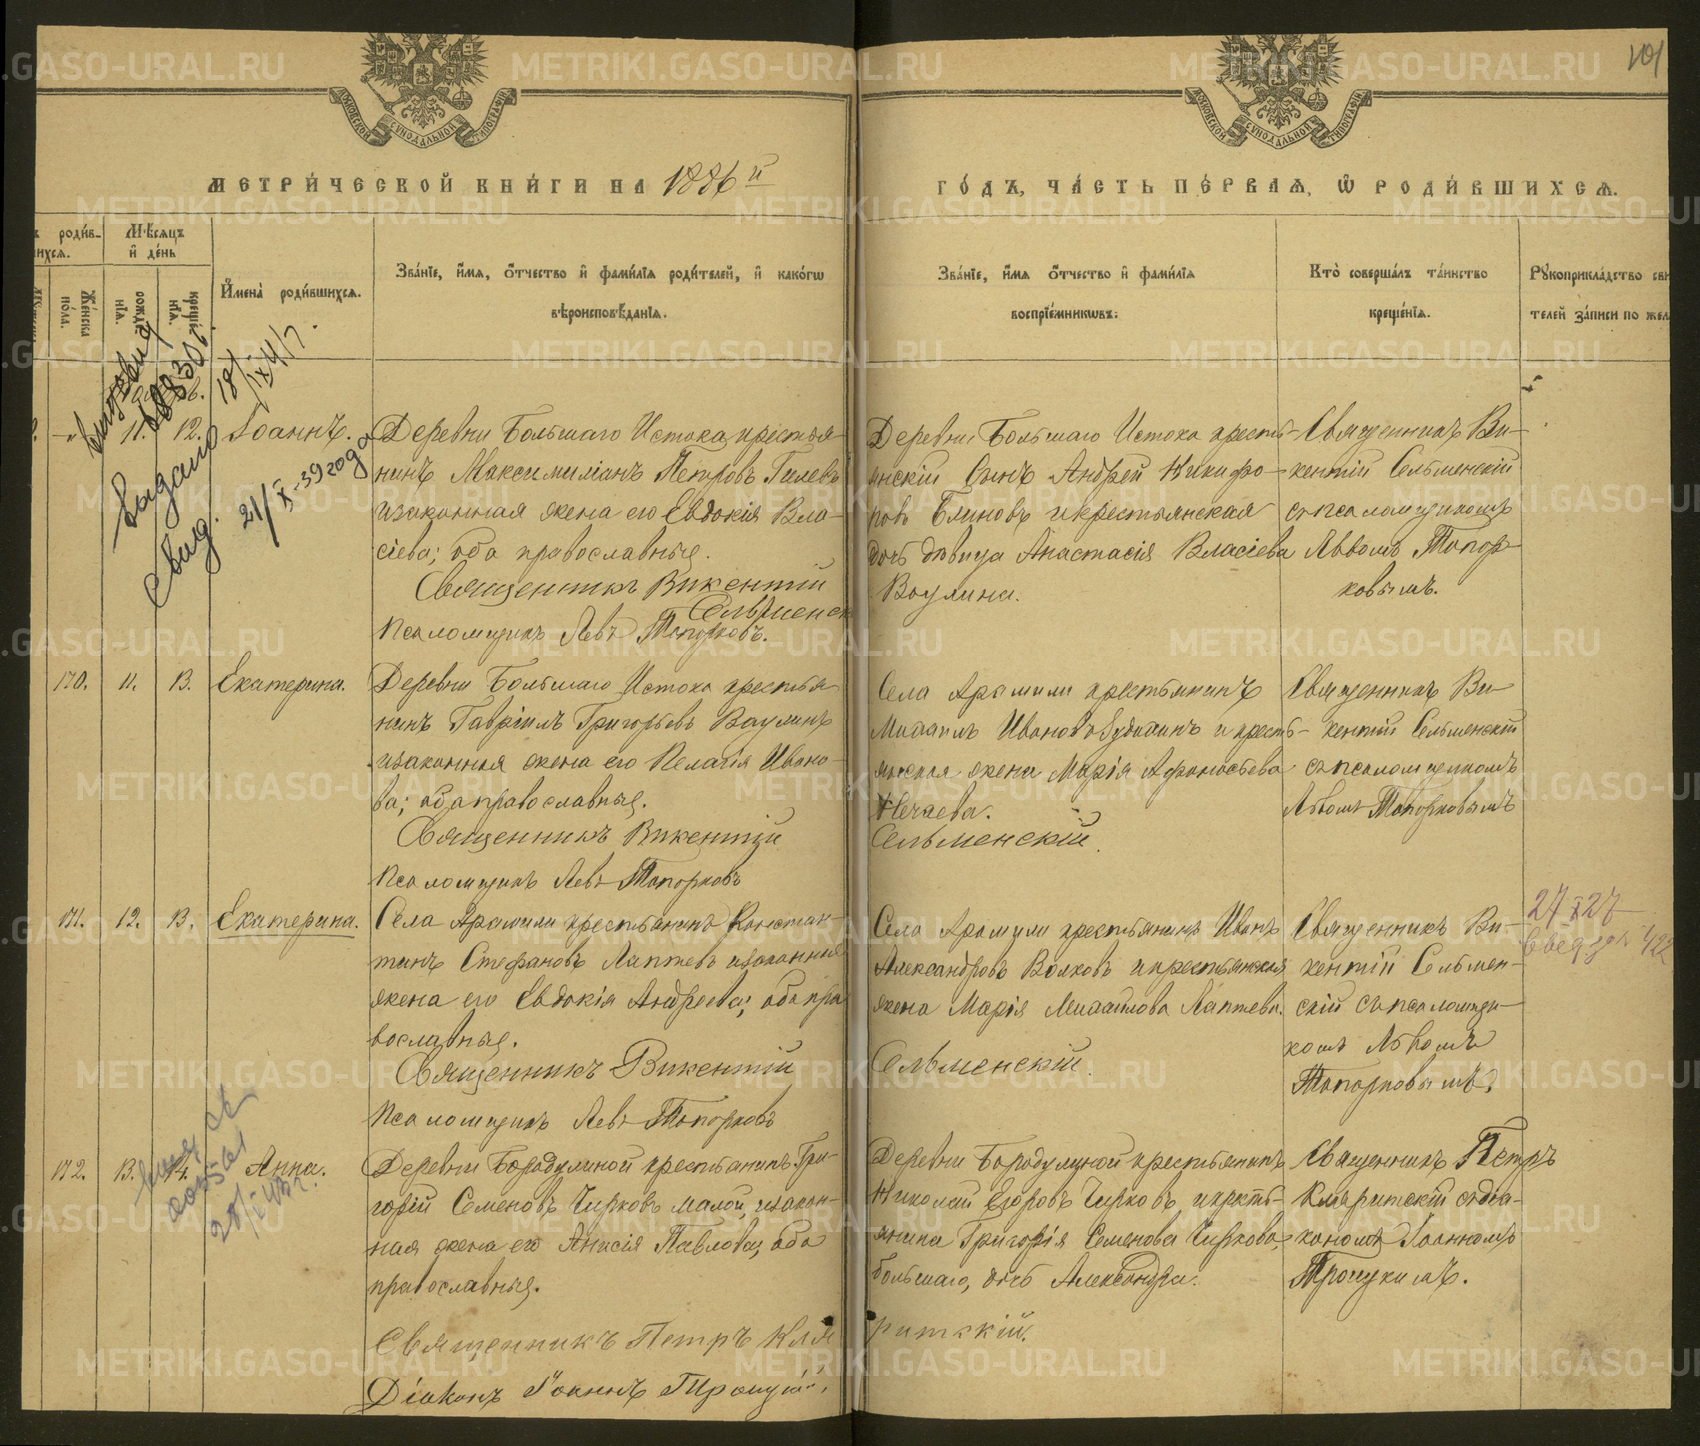 101
МОСКОВСКОЙ СѴНОДАЛЬНОЙ ТИПОГРАФІИ
МОСКОВСКОЙ СѴНОДАЛЬНОЙ ТИПОГРАФІИ
МЕТРИ́ЧЕСКОЙ КНИ́ГИ НА 1886й
ГО́ДЪ, ЧА́СТЬ ПЕ́РВАѦ, Ѽ РОДИ́ВШИХСѦ.
роди́в-
шихсѧ.
Же́нска по́ла.
Мѣ́сѧцъ и҆ де́нь
рожде́нїѧ.
креще́нїѧ.
И҆мена̀ роди́вшихсѧ.
Зва́нїе, и҆́мѧ, ѻ҆́тчество и҆ фами́лїѧ роди́телей, и҆ како́гѡ
вѣроисповѣ́данїѧ.
Зва́нїе, и҆́мѧ ѻ҆́тчество и҆ фами́лїѧ
воспрїе́мникѡвъ:
Кто̀ соверша́лъ та́инство
креще́нїѧ.
Рꙋкоприкла́дство сви
телей за́писи по жел
11. 12. Іоаннъ.
Деревни Большаго Истока крестья-
нинъ Максимиліанъ Петровъ Гилевъ
и законная жена его Евдокія Вла-
сіева; оба православные.
Священникъ Викентій
Сельменск
Псаломщикъ Левъ Топорковъ.
Деревни Большаго Истока кресть-
янскій сынъ Андрей Никифо-
ровъ Блиновъ и крестьянская
дочь девица Анастасія Власіева
Ваулина.
Священникъ Ви-
кентій Сельменскій
съ псаломщикомъ
Львомъ Топор-
ковымъ.
выдано
свид.
21/X-39 года
170. 11. 13. Екатерина.
Деревни Большаго Истока крестья-
нинъ Гавріилъ Григорьевъ Ваулинъ
и законная жена его Пелагія Ивано-
ва; оба православные.
Священникъ Викентій
Псаломщикъ Левъ Топорковъ
Села Арамили крестьянинъ
Михаилъ Ивановъ и кресть-
янская жена Марія Афанасьева
Нечаева.
Сельменскій.
Священникъ Ви-
кентій Сельменскій
съ псаломщикомъ
Львомъ Топорковымъ
171. 12. 13. Екатерина.
Села Арамили крестьянинъ Констан-
тинъ Стефановъ Лаптевъ и законная
жена его Евдокія Андреева; оба пра
вославные.
Священникъ Викентій
Псаломщикъ Левъ Топорковъ
Села Арамили крестьянинъ Иванъ
Александровъ Волковъ и крестьянская
жена Марія Михаилова Лаптева.
Сельменскій.
Священникъ Ви-
кентій Сельмен-
скій съ псаломщи-
комъ Львомъ
Топорковымъ.
27 X 27
172. 13. 14. Анна.
Деревни Бородулиной крестьянинъ Гри-
горій Семеновъ Чирковъ малой, и закон-
ная жена его Анисія Павлова; оба
православные.
Священникъ Петръ Кля
Діаконъ Іоаннъ Троицкій.
Деревни Бородулиной крестьянинъ
Николай Егоровъ Чирковъ и кресть-
янина Григорія Семенова Чиркова,
большаго, дочь Александра.
ритскій.
Священникъ Петръ
Кляритскій съ діа-
кономъ Іоанномъ
Троицкимъ.